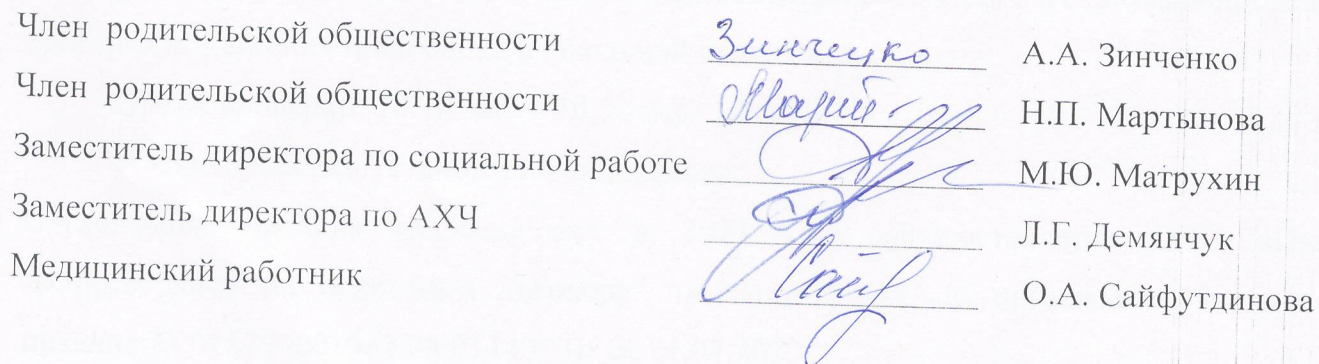 Член родительской общественности Зинченко А.А. Зинченко
Член родительской общественности А.А. Н.П. Мартынова
Заместитель директора по социальной работе М.Ю. Матрухин
Заместитель директора по АХЧ Л.Г. Демянчук
Медицинский работник О.А. Сайфутдинова